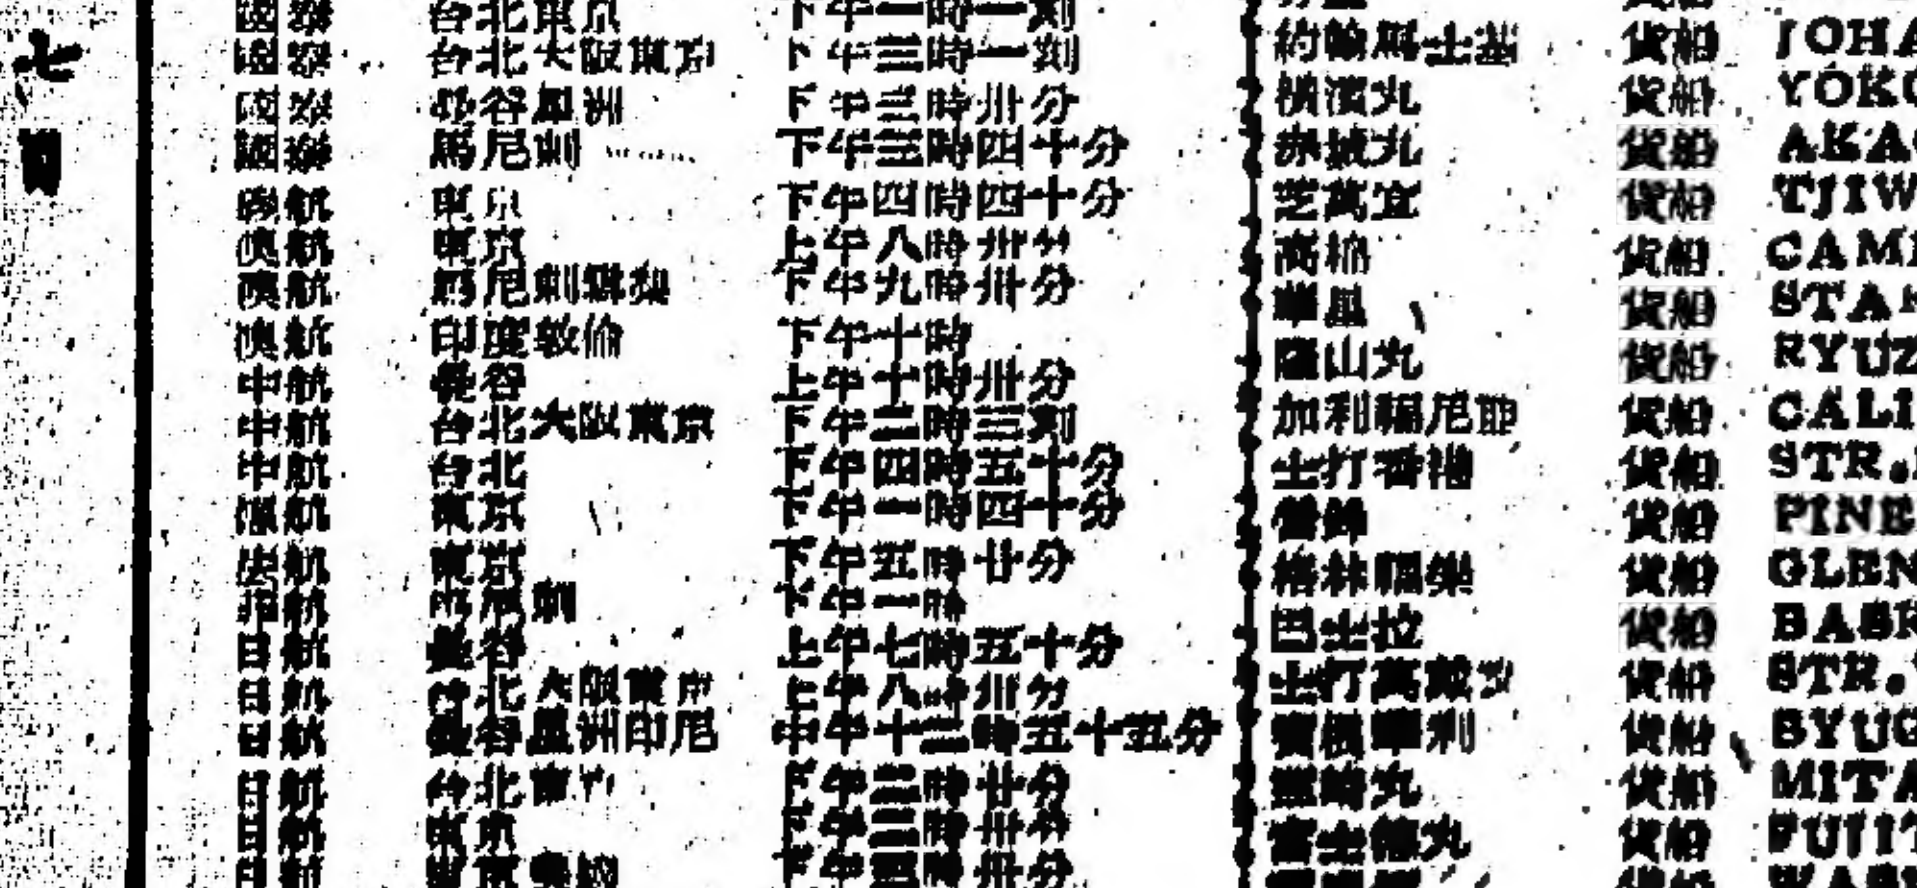 七日
國泰 台北東京 下午一時一刻
國泰 台北大阪東京 下午三時一刻
國泰 曼谷星洲 下午三時卅分
國泰 馬尼剌 下午三時四十分
澳航 東京 下午四時四十分
澳航 東京 上午八時卅分
澳航 馬尼剌 下午九時卅分
澳航 印度敦倫 下午十時
中航 曼谷 上午十時卅分
中航 台北大阪東京 下午二時三刻
中航 台北 下午四時五十分
航 東京 下午一時四十分
航 東京 下午五時廿分
航 剌 下午一時
日航 曼谷 上午七時五十分
日航 台北大阪東京 上午八時卅分
日航 曼谷星洲印尼 中午十二時五十五分
日航 台北東 下午二時廿分
日航 東京 下午三時卅分
日航 東京 下午四時卅分
約翰馬士基 貨船 JOHA
橫濱丸 貨船 YOKO
赤城丸 貨船 AKA
芝萬宜 貨船 TJIW
高棉 貨船 CAM
華星 貨船 STA
隆山丸 貨船 RYUZ
加利福尼耶 貨船 CALI
士打香港 貨船 STR.
貨船 PINE
格林福樂 貨船 GLEN
巴士拉 貨船 BAS
士打萬戴 貨船 STR.
利 貨船 SYUG
丸 貨船 MITA
富士德丸 貨船 FUJIT